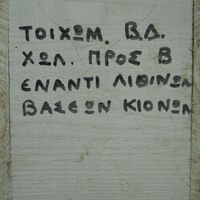 ΤΟΙΧΩΜ. Β.Δ.
ΧΩΛ. ΠΡΟΣ Β
ΕΝΑΝΤΙ ΛΙΘΙΝΩΝ
ΒΑΣΕΩΝ ΚΙΟΝΩΝ